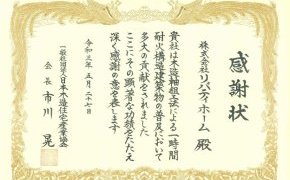 感謝状
株式会社リバティホーム 殿
貴社は木造軸組工法による一時間
耐火構造建築物の普及において
多大の貢献をされました
ここにその顕著な功績をたたえ
深く感謝の意を表します
令和三年 五月二十七日
一般社団法人日本木造住宅産業協会
会長 市川 晃